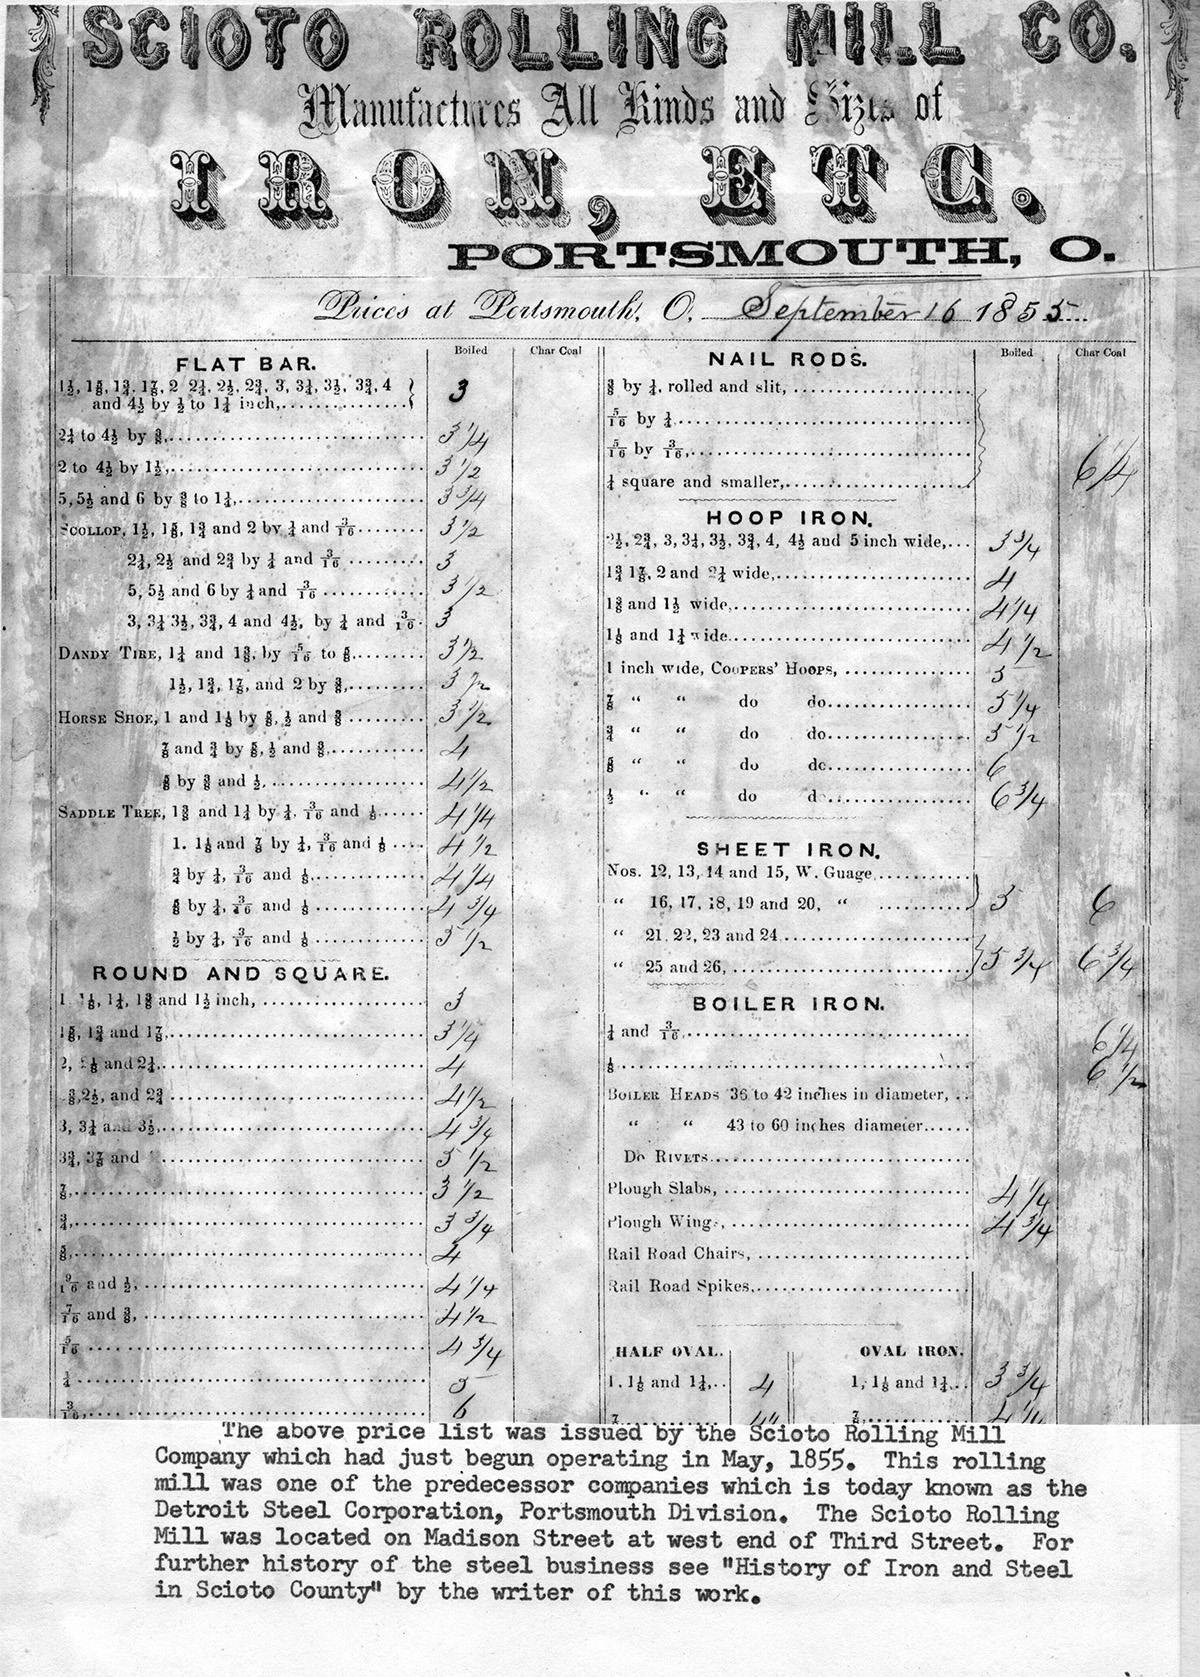 SCIOTO ROLLING MILL CO.
Manufactures All Kinds and Sizes of
IRON, ETC.
PORTSMOUTH, O.
Prices at Portsmouth, O, September 16 1855
Boiled Char Coal
FLAT BAR.
1½, 1⅝, 1¾, 1⅞, 2 2¼, 2½, 2¾, 3, 3¼, 3½, 3¾, 4
and 4½ by ½ to 1¼ inch, 3
2¼ to 4½ by ⅜, 3 1/4
2 to 4½ by 1½, 3 1/2
5, 5½ and 6 by ⅜ to 1¼, 3 3/4
SCOLLOP, 1½, 1⅝, 1¾ and 2 by ¼ and 3/16 3 1/2
2¼, 2½ and 2¾ by ¼ and 3/16 3
5, 5½ and 6 by ¼ and 3/16 3 1/2
3, 3¼ 3½, 3¾, 4 and 4½, by ¼ and 3/16 3
DANDY TIRE, 1¼ and 1⅜, by 5/16 to ⅝, 3 1/2
1½, 1¾, 1⅞, and 2 by ⅜, 3 1/2
HORSE SHOE, 1 and 1⅛ by ⅝, ½ and ⅜ 3 1/2
⅞ and ¾ by ⅝, ½ and ⅜, 4
⅝ by ⅜ and ½, 4 1/2
SADDLE TREE, 1⅜ and 1¼ by ¼, 3/16 and ⅛ 4 1/4
1. 1⅛ and ⅞ by ¼, 3/16 and ⅛ 4 1/2
¾ by ¼, 3/16 and ⅛, 4 1/4
⅝ by ¼, 3/16 and ⅛ 4 3/4
½ by ¼, 3/16 and ⅛ 5 1/2
ROUND AND SQUARE.
1 1⅛, 1¼, 1⅜ and 1½ inch, 3
1⅝, 1¾ and 1⅞, 3 1/4
2, 2⅛ and 2¼, 4
⅜, 2½, and 2¾ 4 1/2
3, 3¼ and 3½, 4 3/4
3¾, 3⅞ and 5 1/2
⅞, 3 1/2
¾, 3 3/4
⅝, 4
9/16 and ½, 4 1/4
7/16 and ⅜, 4 1/2
5/16 4 3/4
¼ 5
3/16, 6
Boiled Char Coal
NAIL RODS.
⅜ by ¼, rolled and slit,
5/16 by ¼,
5/16 by 3/16,
¼ square and smaller, 6 1/4
HOOP IRON.
2½, 2¾, 3, 3¼, 3½, 3¾, 4, 4½ and 5 inch wide, 3 3/4
1¾ 1⅞, 2 and 2¼ wide, 4
1⅜ and 1½ wide, 4 1/4
1⅛ and 1¼ wide 4 1/2
1 inch wide, COOPERS' HOOPS, 5
⅞ “ “ do do 5 1/4
¾ “ “ do do 5 1/2
⅝ “ “ do do 6
½ “ “ do d 6 3/4
SHEET IRON.
Nos. 12, 13, 14 and 15, W. Guage
“ 16, 17, 18, 19 and 20, “ 5 6
“ 21. 22, 23 and 24
“ 25 and 26, 5 3/4 6 3/4
BOILER IRON.
¼ and 3/16, 6 1/4
⅛ 6 1/2
BOILER HEADS 36 to 42 inches in diameter,
“ “ 43 to 60 inches diameter
Do RIVETS
Plough Slabs, 4 1/4
Plough Wings, 4 3/4
Rail Road Chairs,
Rail Road Spikes,
HALF OVAL. OVAL IRON.
1, 1⅛ and 1¼, 4 1, 1⅛ and 1¼ 3 3/4
The above price list was issued by the Scioto Rolling Mill
Company which had just begun operating in May, 1855. This rolling
mill was one of the predecessor companies which is today known as the
Detroit Steel Corporation, Portsmouth Division. The Scioto Rolling
Mill was located on Madison Street at west end of Third Street. For
further history of the steel business see "History of Iron and Steel
in Scioto County" by the writer of this work.